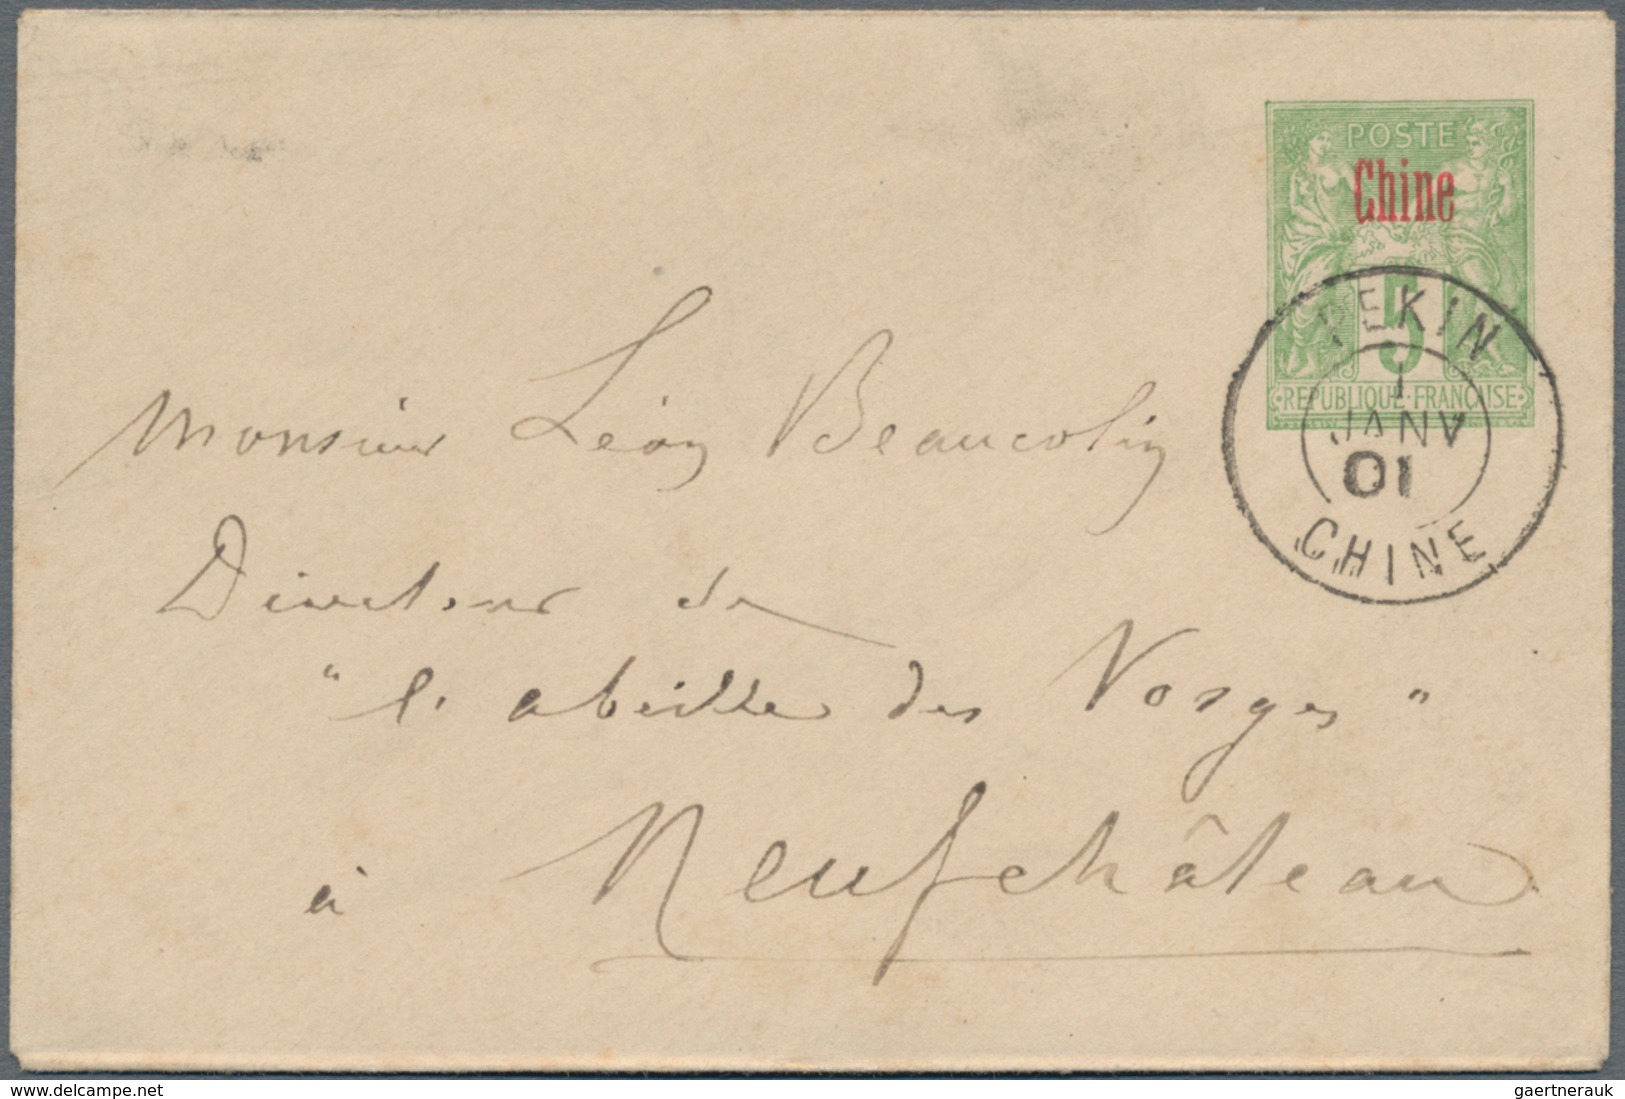 POSTE
Chine
5
REPUBLIQUE FRANÇAISE
PEKIN
1
JANV
01
CHINE
Monsieur Léon Beaucolin
Directeur de
"l'abeille des Vosges"
à Neufchâteau
www.delcampe.net
gaertnerauk